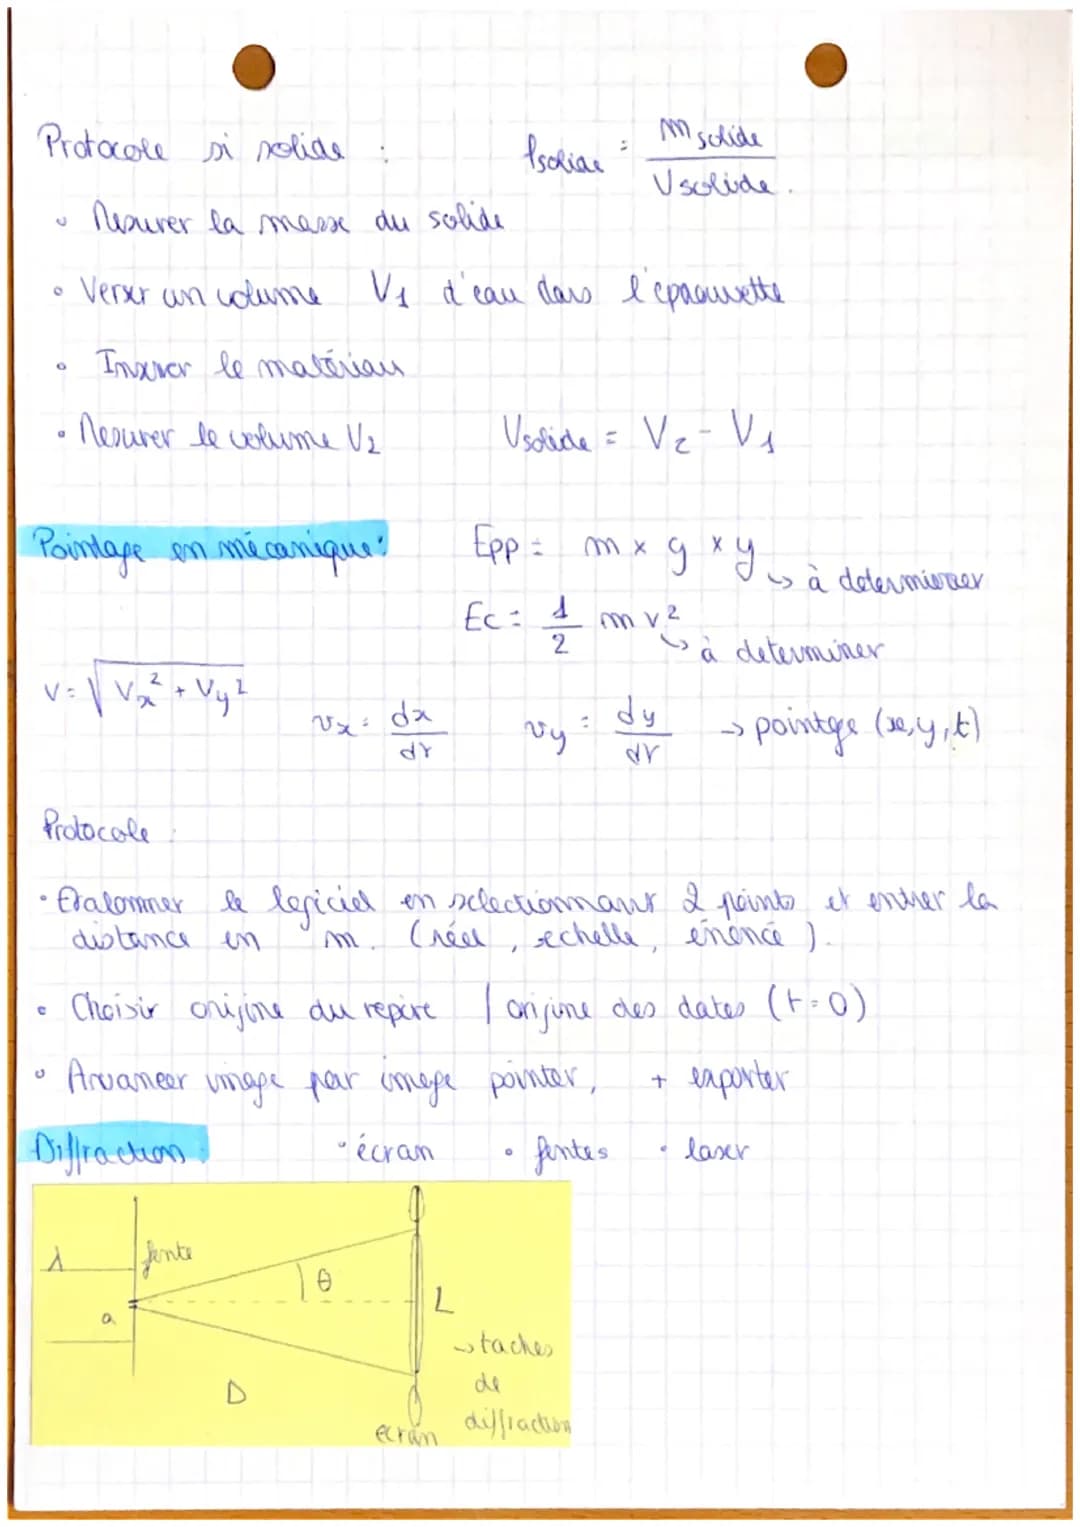 Protocole si solide : ρsolide = m solide / V solide.
• Mesurer la masse du solide
• Verser un volume V1 d'eau dans l'éprouvette
• Insérer le matériau
• Mesurer le volume V2 Vsolide = V2 - V1
Pointage en mécanique : Epp = m x g x y ↳ à déterminer
Ec = 1/2 m v² ↳ à determiner
v = √(Vx² + Vy²) vx = dx/dt vy = dy/dt → pointge (x, y, t)
Protocole :
• Etalonner le logiciel en sélectionnant 2 points et entrer la
distance en m. (réel, echelle, énoncé).
• Choisir origine du repère / origine des dates (t=0)
• Avancer image par image pointer, + exporter
Diffraction : • écran • fentes • laser
λ fente
θ
a L
→ taches
de
diffraction
D
écran